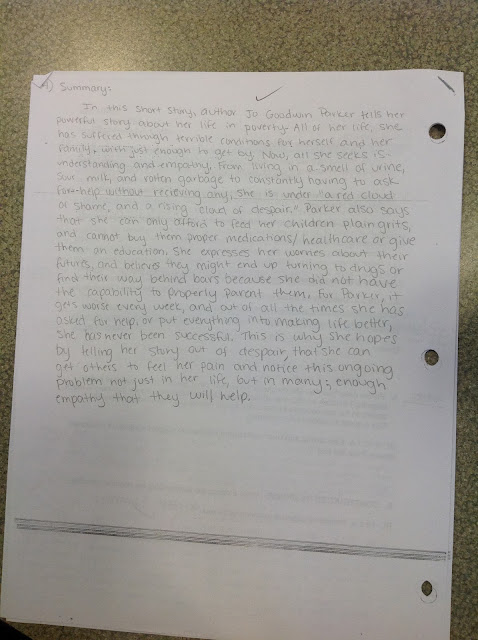 1) Summary:
In this short story, author Jo Goodwin Parker tells her
powerful story about her life in poverty. All of her life, she
has suffered through terrible conditions for herself and her
family, with just enough to get by. Now, all she seeks is
understanding and empathy. From "living in a smell of urine,
sour milk, and rotten garbage to constantly having to ask
for help without recieving any, she is under "a red cloud
of shame, and a rising cloud of despair." Parker also says
that she can only afford to feed her children plain grits,
and cannot buy them proper medications/healthcare or give
them an education. She expresses her worries about their
futures, and believes they might end up turning to drugs or
find their way behind bars because she did not have
the capability to properly parent them. For Parker, it
gets worse every week, and out of all the times she has
asked for help, or put everything into making life better,
she has never been successful. This is why she hopes
by telling her story out of despair, that she can
get others to feel her pain and notice this ongoing
problem not just in her life, but in many; enough
empathy that they will help.